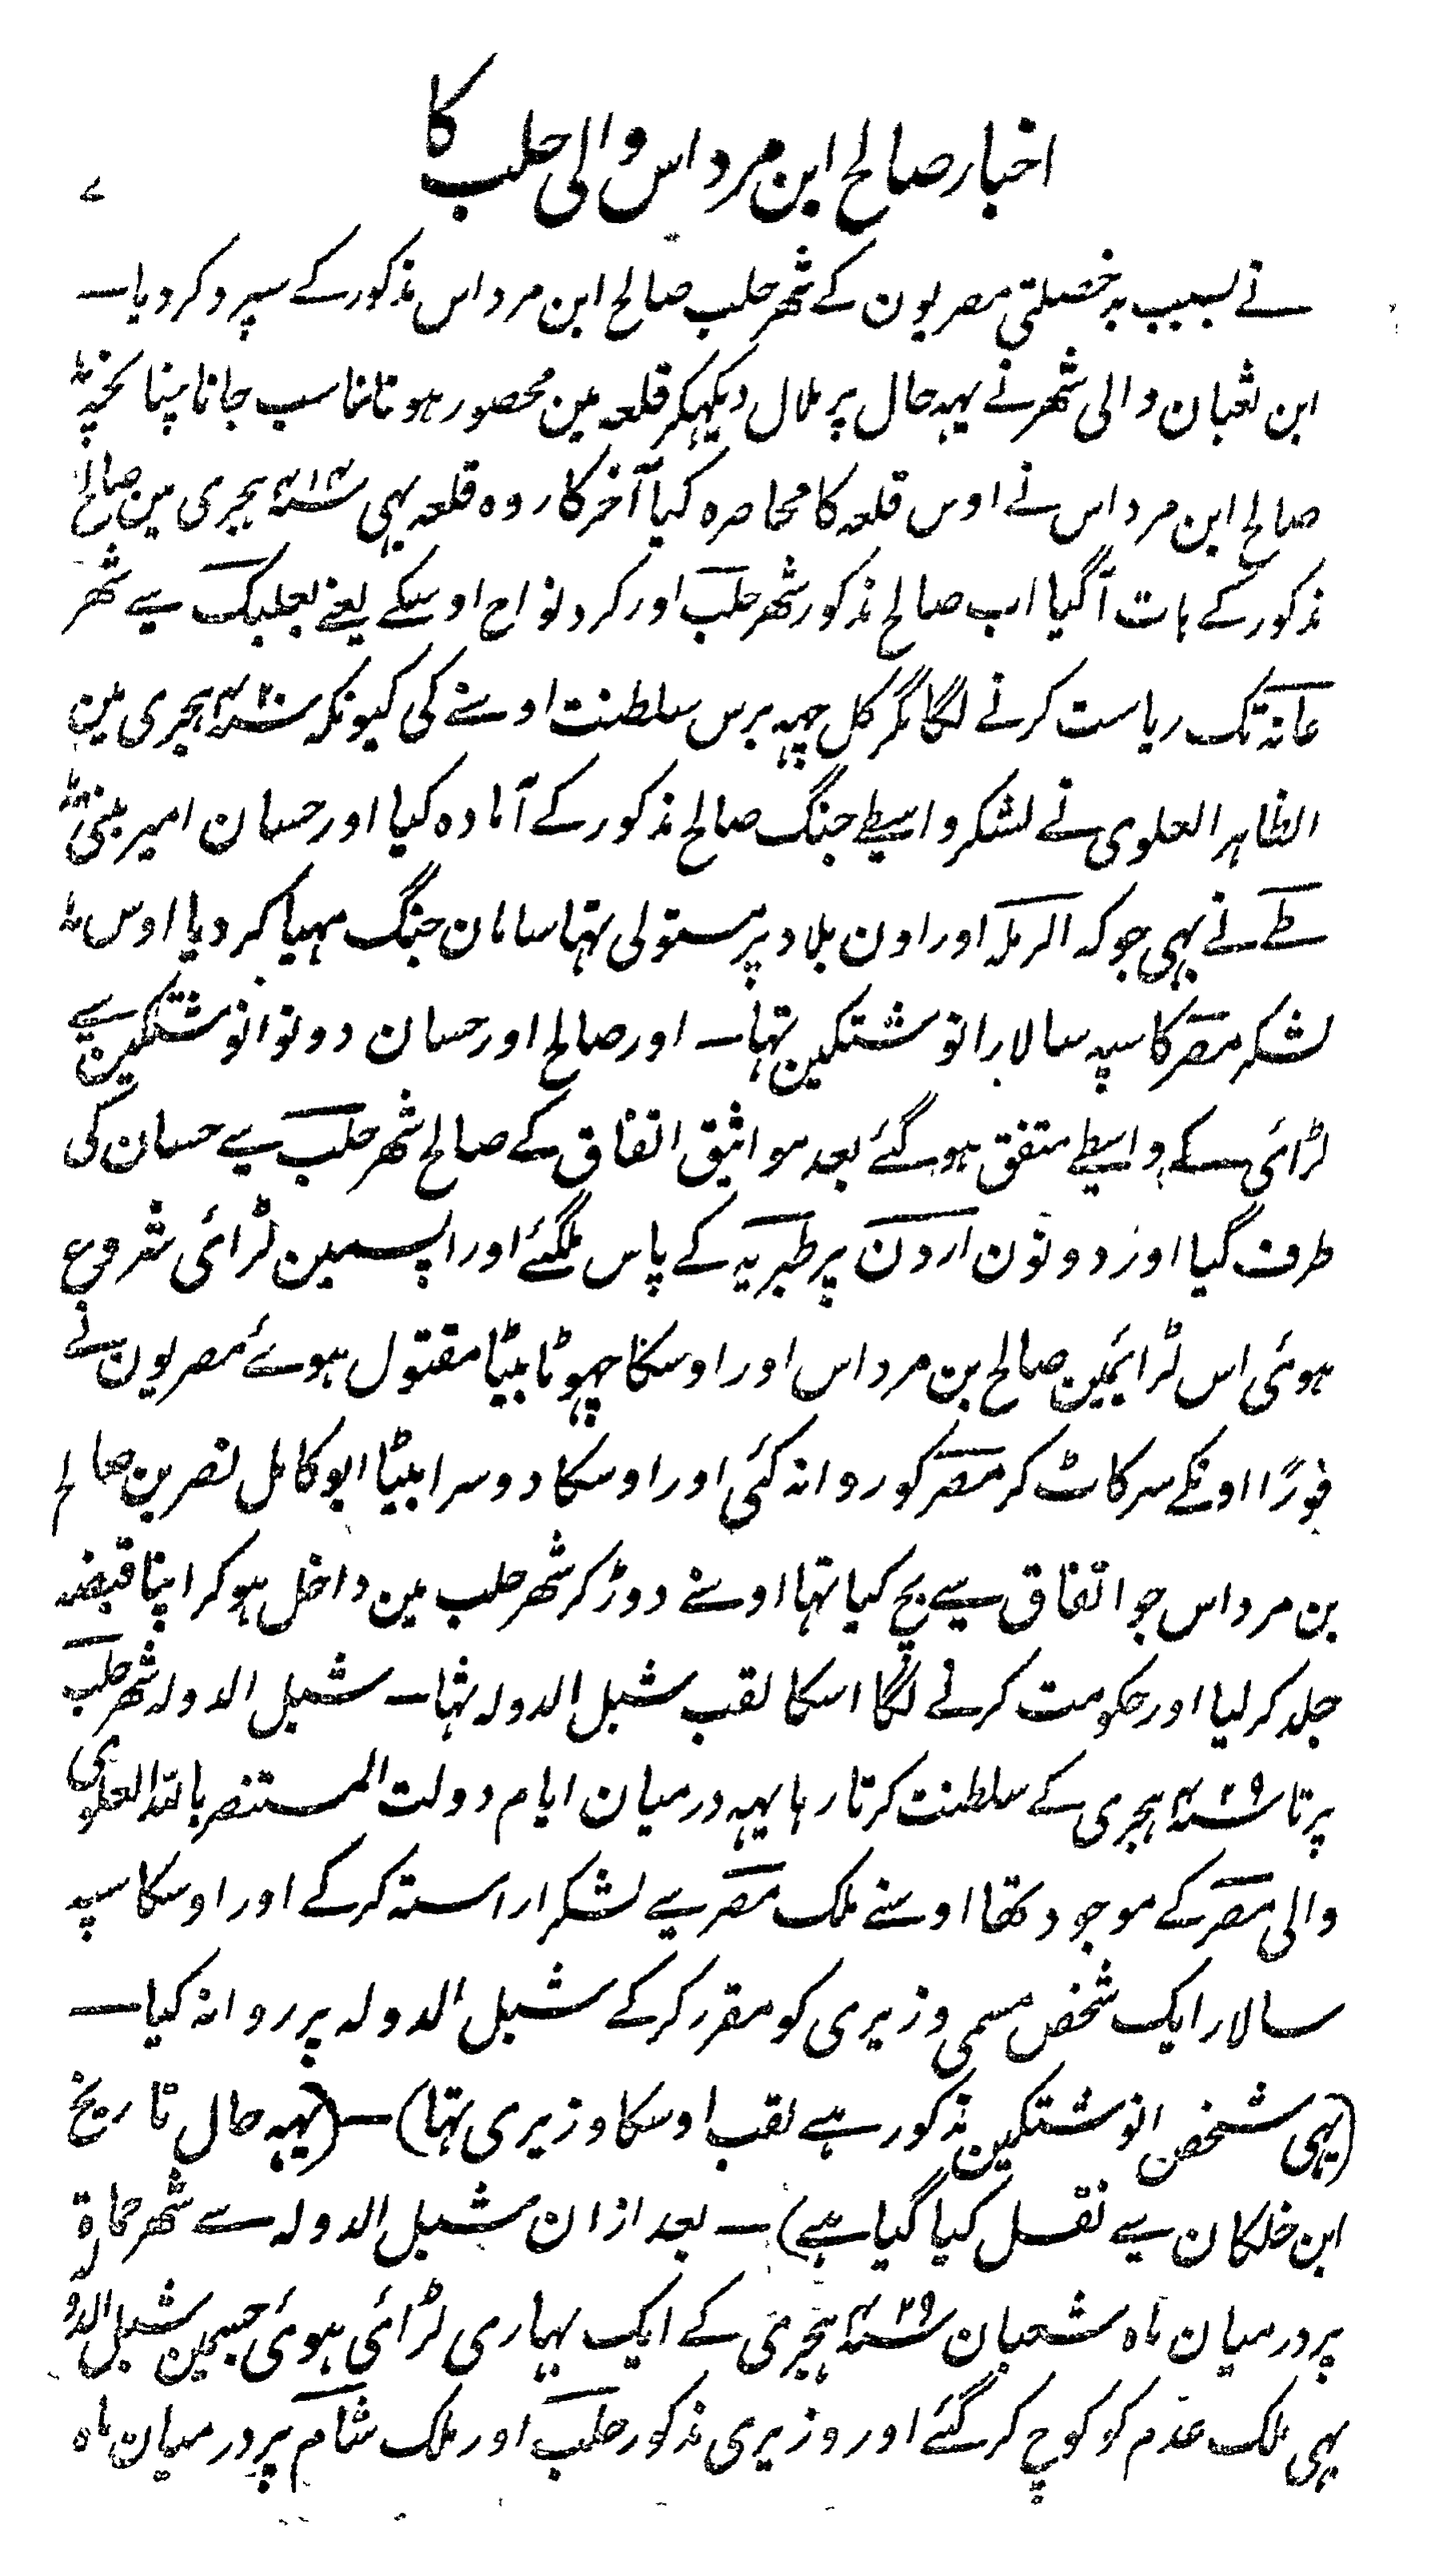 اخبار صالح ابن مرداس والی حلب کا
۷
نے بسبب بدخصلتی مصریون کے شہر حلب صالح ابن مرداس مذکور کے سپرد کر دیا۔
ابن ثعبان والی شہر نے یہہ حال پر ملال دیکہکر قلعہ مین محصور ہونا مناسب جانا چنانچہ
صالح ابن مرداس نے اوس قلعہ کا محاصرہ کیا آخر کار وہ قلعہ بہی سنہ ۴۱۴ ہجری مین صالح
مذکور کے ہات آگیا اب صالح مذکور شہر حلب اور گرد نواح اوسکے یعنے بعلبک سے شہر
عانہ تک ریاست کرنے لگا مگر کل چہہ برس سلطنت اوسنے کی کیونکہ سنہ ۴۲۰ ہجری مین
الظاہر العلوی نے لشکر واسطے جنگ صالح مذکور کے آمادہ کیا اور حسان امیر بنی
طے نے بہی جو کہ الرملہ اور اون بلاد پر مستولی تہا سامان جنگ مہیا کر دیا اوس
لشکر مصر کا سپہ سالار انوشتکین تہا۔ اور صالح اور حسان دونو انوشتکین سے
لڑائی کے واسطے متفق ہو گئے بعد مواثیق اتفاق کے صالح شہر حلب سے حسان کی
طرف گیا اور دونون اردن پر طبریہ کے پاس ملگئے اور اپسمین لڑائی شروع
ہوئی اس لڑائیمین صالح بن مرداس اور اوسکا چہوٹا بیٹا مقتول ہوئے مصریون نے
فورًا اونکے سر کاٹ کر مصر کو روانہ کئی اور اوسکا دوسرا بیٹا ابو کامل نصر بن صالح
بن مرداس جو اتفاق سے بچ گیا تہا اوسنے دوڑ کر شہر حلب مین داخل ہو کر اپنا قبضہ
جلد کر لیا اور حکومت کرنے لگا اسکا لقب شبل الدولہ تہا۔ شبل الدولہ شہر حلب
پر تا سنہ ۴۲۹ ہجری کے سلطنت کرتا رہا یہہ درمیان ایام دولت المستنصر باللہ العلوی
والی مصر کے موجود تھا اوسنے ملک مصر سے لشکر اراستہ کر کے اور اوسکا سپہ
سالار ایک شخص مسمی وزیری کو مقرر کر کے شبل الدولہ پر روانہ کیا۔
(یہی شخص انوشتکین مذکور ہے لقب اوسکا وزیری تہا)۔ (یہہ حال تاریخ
ابن خلکان سے نقل کیا گیا ہے)۔ بعد ازان شبل الدولہ سے شہر حماۃ
پر درمیان ماہ شعبان سنہ ۴۲۹ ہجری کے ایک بہاری لڑائی ہوئی جسمین شبل الدولہ
بہی ملک عدم کو کوچ کر گئے اور وزیری مذکور حلب اور ملک شام پر درمیان ماہ